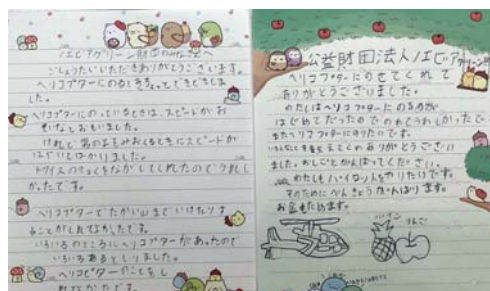 ノエビアグリーン財団のみなさまへ
ごしょうたいいただきありがとうございます。
ヘリコプターにのるときちょっとどきどきしま
した。
ヘリコプターにのっているときは、スピードがお
そいなとおもいました。
けれど
スピードが
はやい
かりました。
トイズの
きょくをながしてくれたのでうれし
かったです。
ヘリコプターでたかい山までいけたりす
ることがしれてよかったです。
いろいろのところにヘリコプターがあったので
いろいろあるとしりました。
ヘリコプターのことをし
れてよかったです。
公益財団法人ノエビアグリーン財
ヘリコプターにのせてくれて
ありがとうございました。
わたしはヘリコプターにのるのが
はじめてだったのでのれてうれしかったで
またヘリコプターにのりたいです。
いろんなことを教えてくれてありがとうござい
ました。おしごとがんばってください。
わたしもパイロットをやりたいです。
そのためにべんきょうがんばります。
お金もためます。
パイン
りんご